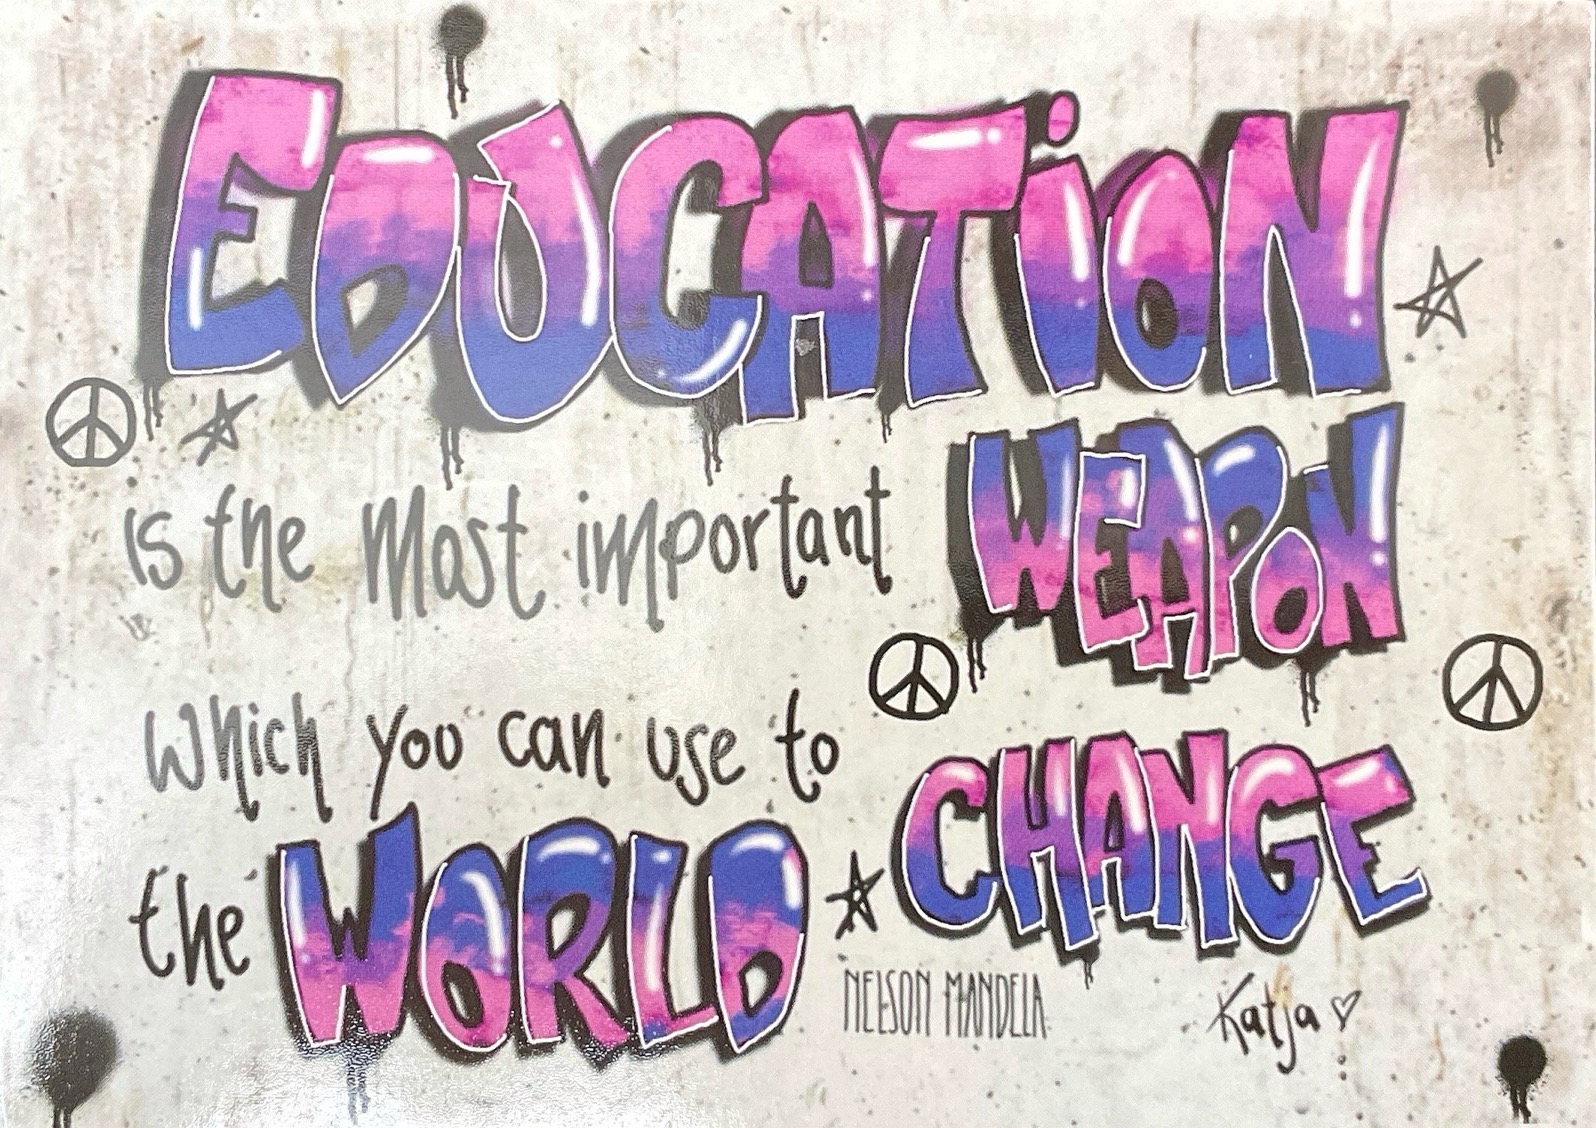 EDUCATiON
is the most important WEAPON
which you can use to CHANGE
the WORLD
NELSON MANDELA
Katja ♡